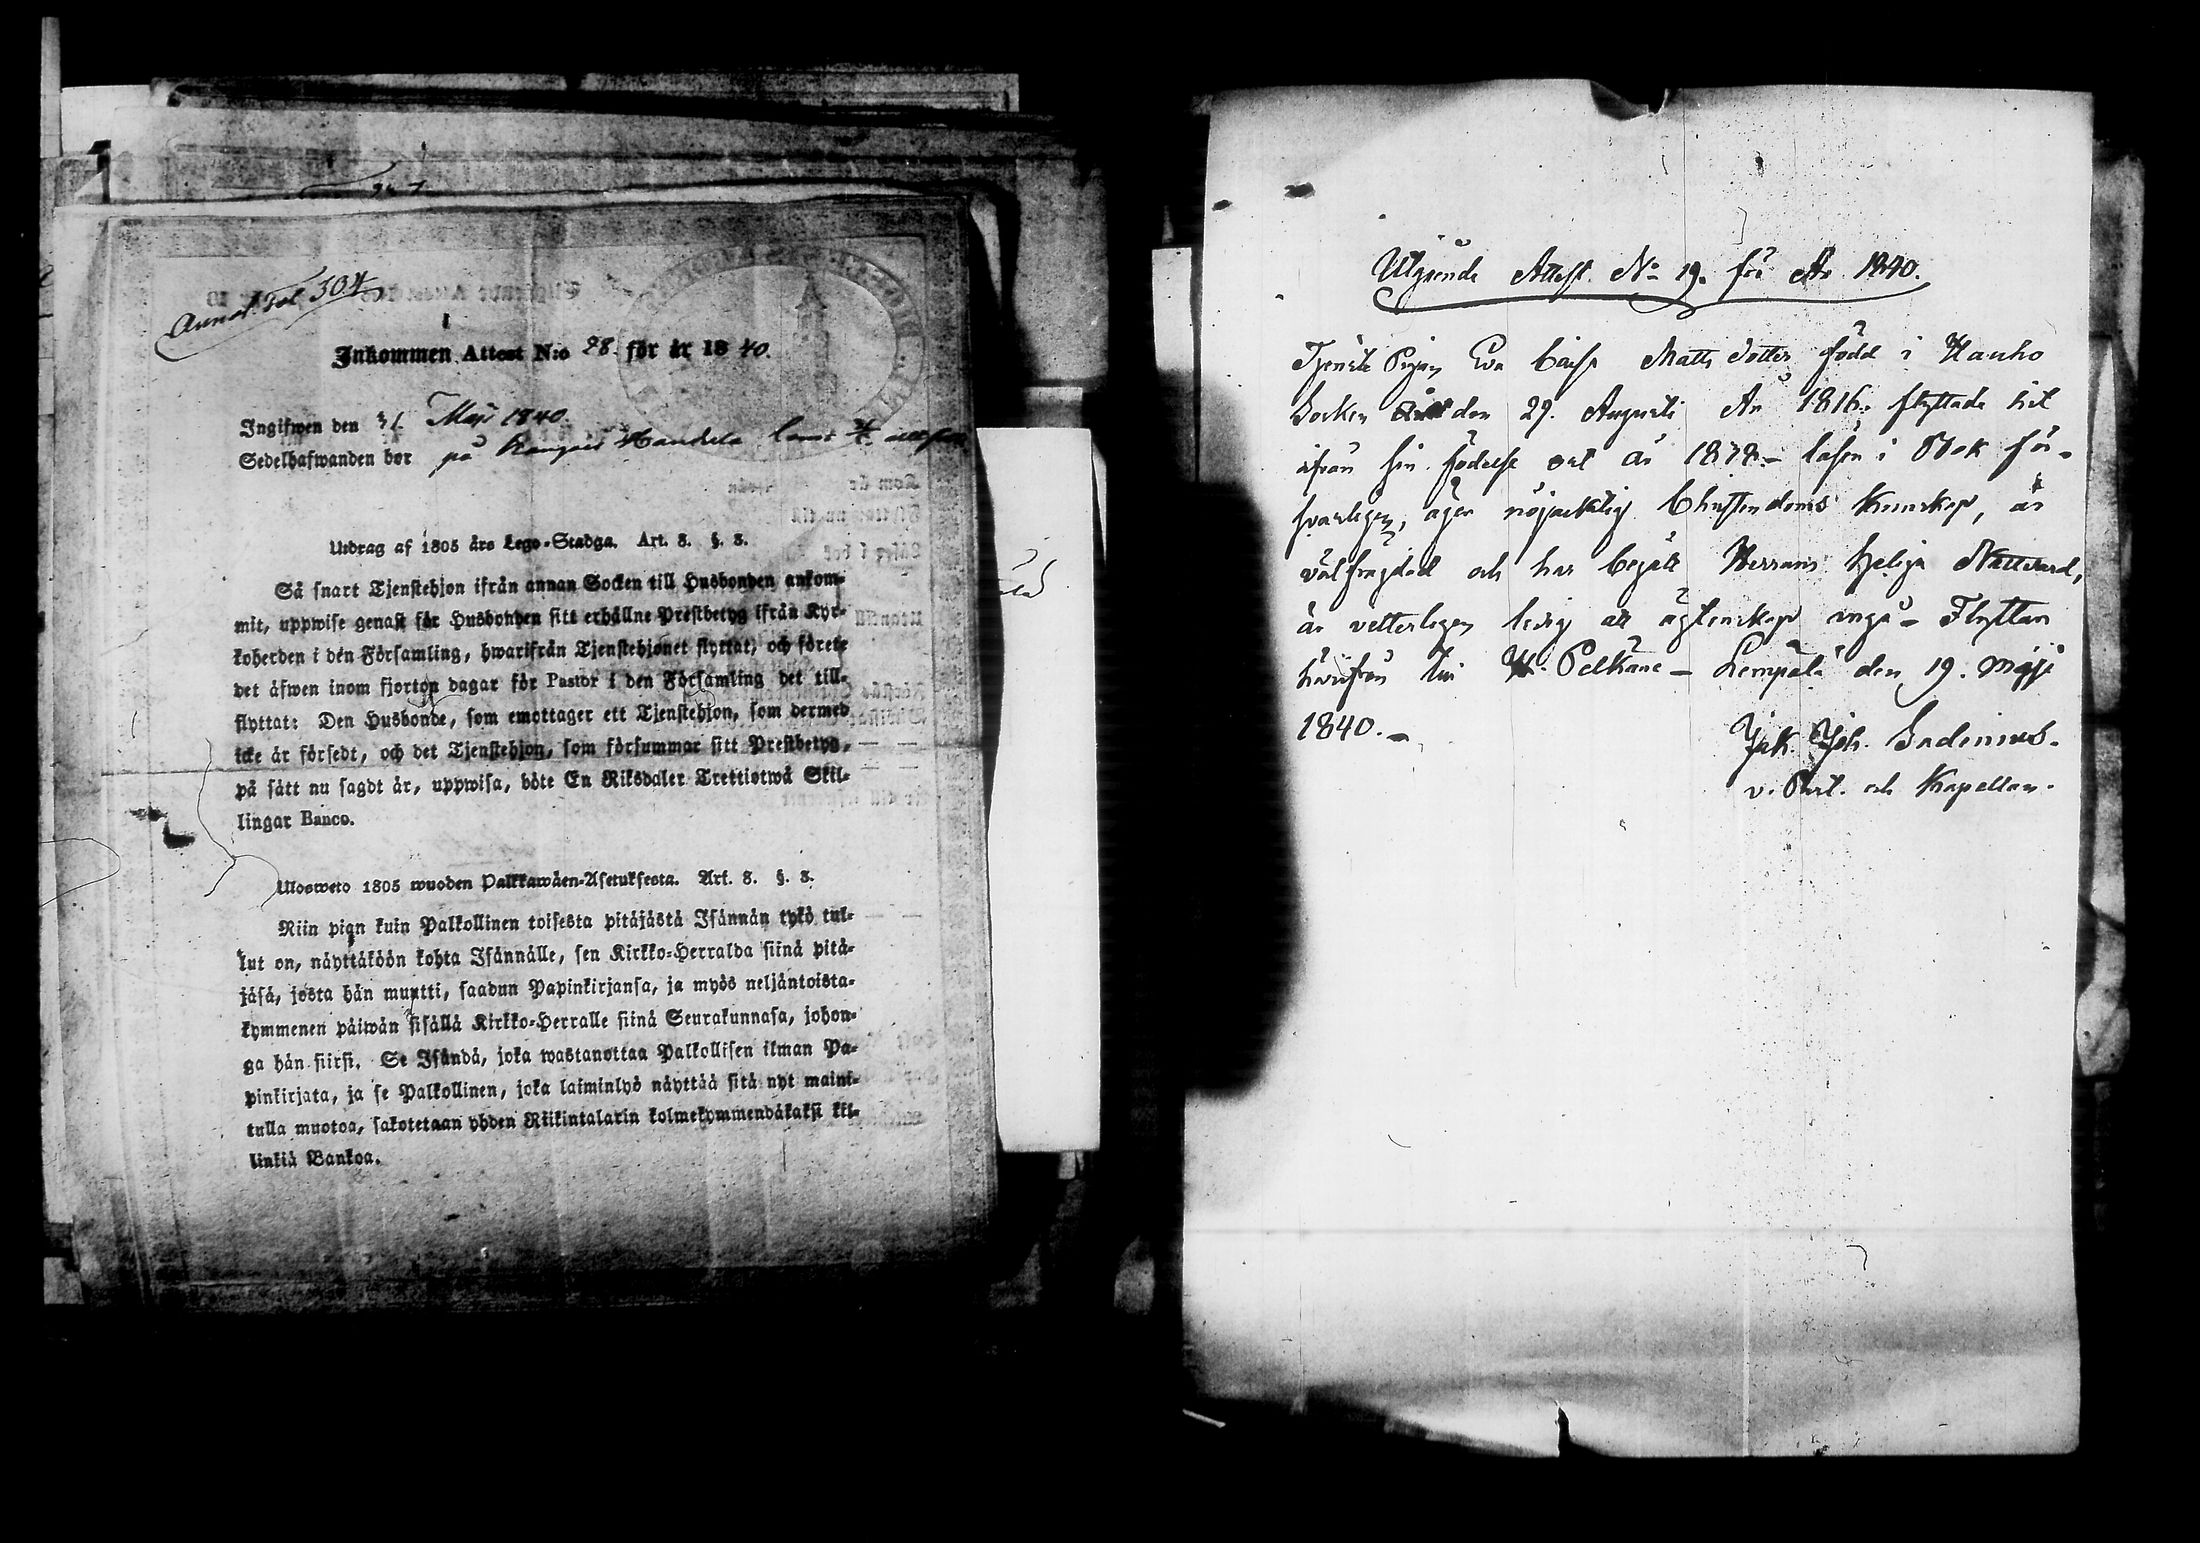 Annot. Fol. 304
Inkommen Attest N:o 28. för år 1840.
Ingifwen den 31 Maji 1840.
Sedelhafwanden bor på Kangais Handela
Utdrag af 1805 års Lego-Stadga. Art. 8. §. 3.
Så snart Tjenstehjon ifrån annan Socken till Husbonden ankom-
mit, uppwise genast för Husbonden sitt erhållne Prestbetyg ifrån Kyr-
koherden i den Församling, hwarifrån Tjenstehjonet flyttat, och förete
det äfwen inom fjorton dagar för Pastor i den Församling det till-
flyttat: Den Husbonde, som emottager ett Tjenstehjon, som dermed
icke är försedt, och det Tjenstehjon, som försummar sitt Prestbetyg,
på sätt nu sagdt är, uppwisa, böte En Riksdaler Trettiotwå Skil-
lingar Banco.
Ulosweto 1805 wuoden Palkkawäen-Asetuksesta. Art. 8. §. 3.
Niin pian kuin Palkollinen toisesta pitäjästä Isännän tykö tul-
lut on, näyttäköön kohta Isännälle, sen Kirkko-Herralda siinä pitä-
jäsä, josta hän muutti, saadun Papinkirjansa, ja myös neljäntoista-
kymmenen päiwän sisällä Kirkko-Herralle siinä Seurakunnasa, johon-
ga hän siirsi. Se Isändä, joka wastanottaa Palkollisen ilman Pa-
pinkirjata, ja se Palkollinen, joka laiminlyö näyttää sitä nyt maini-
tulla muotoa, sakotetaan yhden Riikintalarin kolmekymmendäkaksi kil-
linkiä Bankoa.
Utgående Attest No 19. för År 1840.
Tjenste Pigan Eva Caisa Matts dotter född i Hauho
Socken den 29. Augusti År 1816. flyttade hit
ifrån sin födelse ort år 1838. läser i Bok för-
svarligen, äger nöjacktig Christendoms Kunskap, är
välfrägdad och har begått Herrans Heliga Nattvard,
är vetterligen ledig att ägtenskap ingå - Flyttar
härifrån till Pelkäne - Lempälä den 19. Maji
1840.
Jak. Joh. Sadenius.
v. Past. och Kapellan.